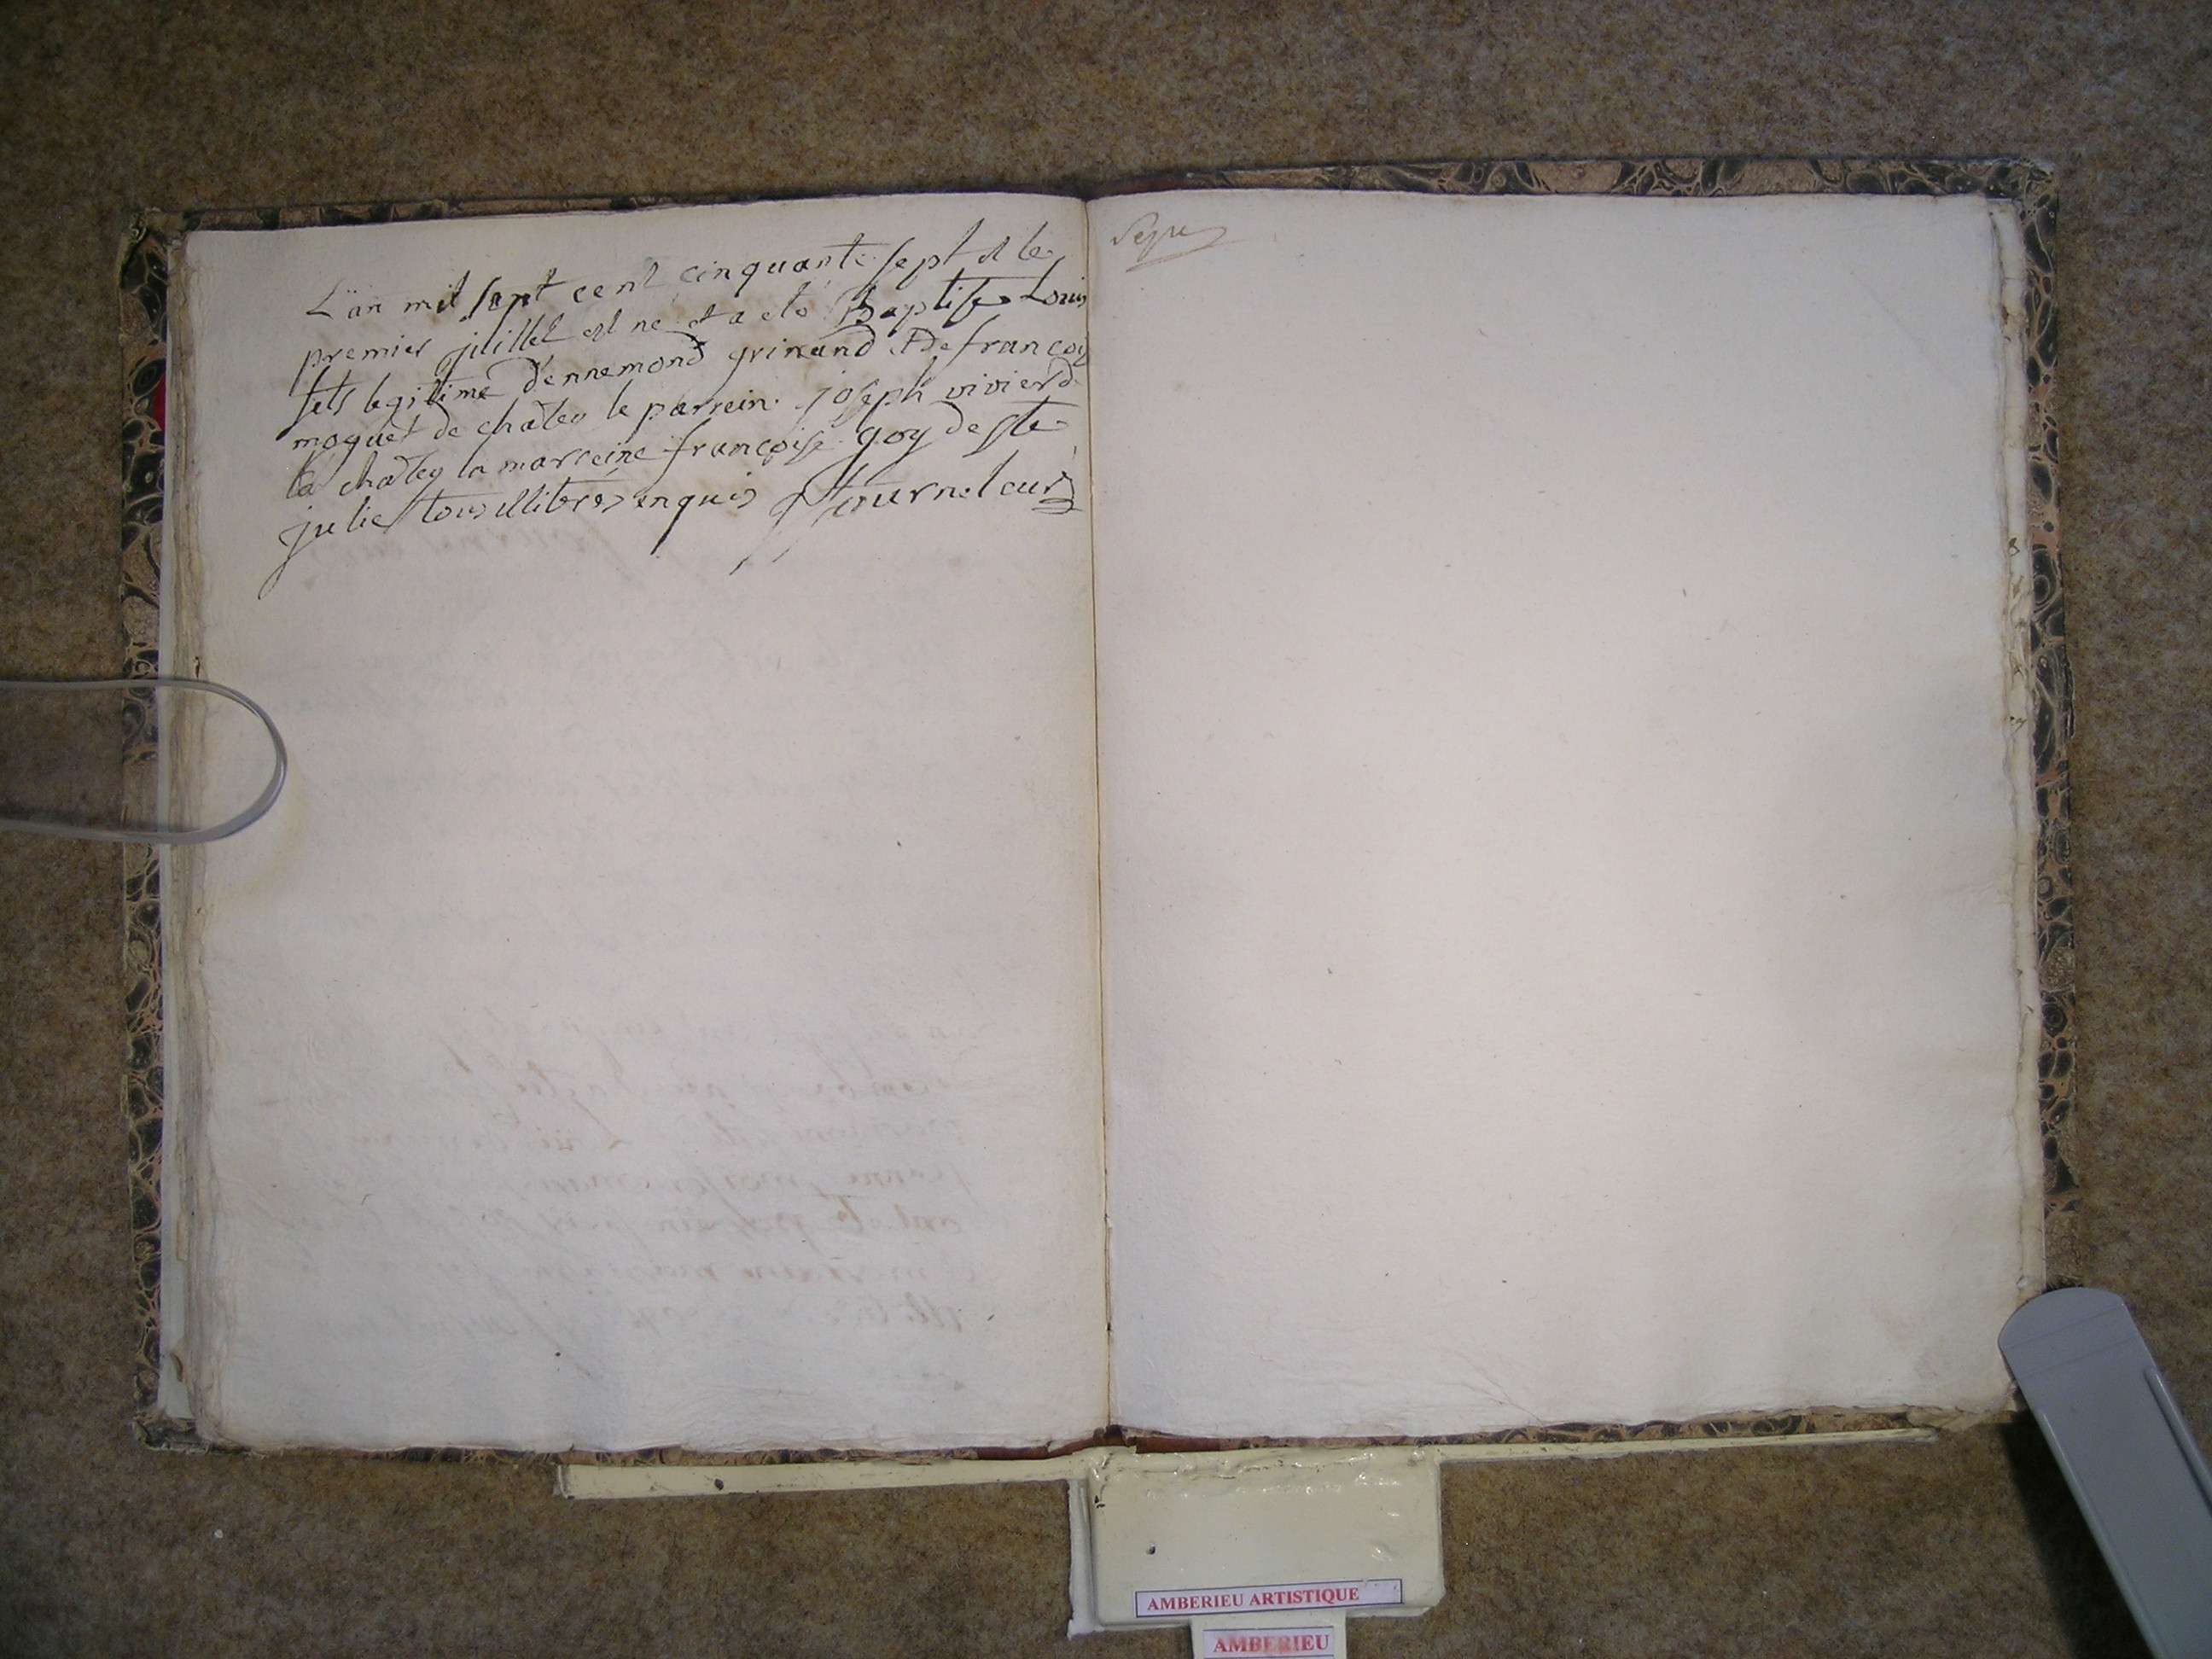 L'an mil sept cent cinquante sept et le
premier juillet est né et a eté Baptise Louis
fils legitime d'ennemond grinand et de francois
moguet de chaley le parrein joseph vivier de
la chaley la marreine françoise goy de ste
julie tous illitérés enquis Fournel curé
AMBERIEU ARTISTIQUE
AMBERIEU